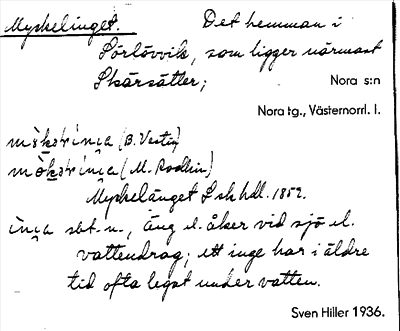 Myckelinget. Det hemman i
Sörlövvik, som ligger närmast
Skärsätter; Nora s:n
Nora tg., Västernorrl. l.
(B. Vestin)
(M. Rodhin)
Myckelänget Lsk hdl. 1852.
sbt. n., Äng el. åker vid sjö el.
vattendrag; ett inge har i äldre
tid ofta legat under vatten.
Sven Hiller 1936.